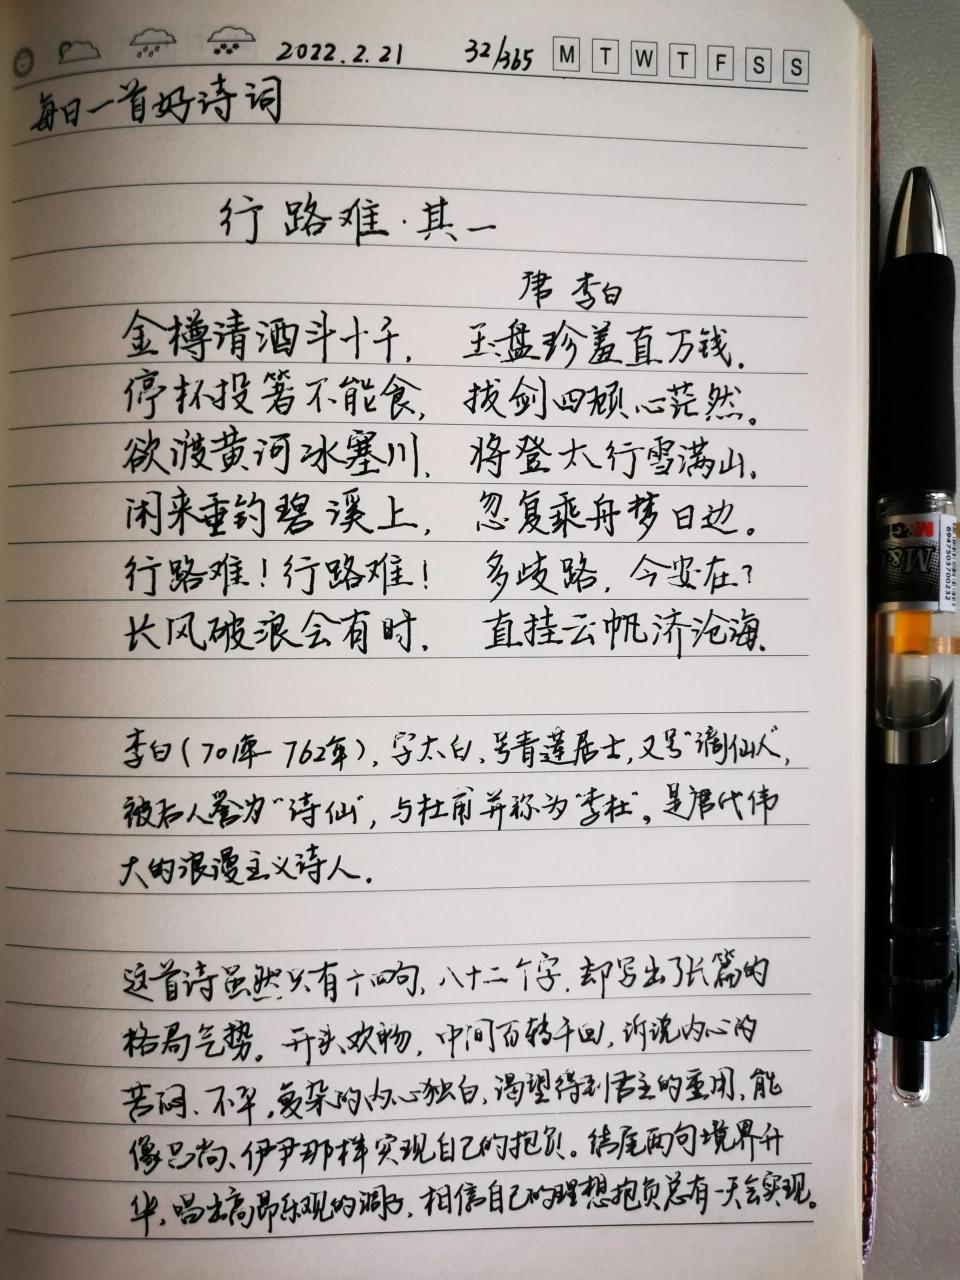 2022.2.21 32/365 M T W T F S S
每日一首好诗词
行路难·其一
唐 李白
金樽清酒斗十千, 玉盘珍羞直万钱。
停杯投箸不能食, 拔剑四顾心茫然。
欲渡黄河冰塞川, 将登太行雪满山。
闲来垂钓碧溪上, 忽复乘舟梦日边。
行路难!行路难! 多歧路,今安在?
长风破浪会有时, 直挂云帆济沧海。
李白(701年-762年),字太白,号青莲居士,又号"谪仙人",
被后人誉为"诗仙",与杜甫并称为"李杜"。是唐代伟
大的浪漫主义诗人。
这首诗虽然只有十四句,八十二个字,却写出了长篇的
格局气势。开头欢畅,中间百转千回,诉说内心的
苦闷、不平,复杂的内心独白,渴望得到君主的重用,能
像吕尚、伊尹那样实现自己的抱负。结尾两句境界升
华,唱出高昂乐观的调子,相信自己的理想抱负总有一天会实现。
M&G
6947503700232